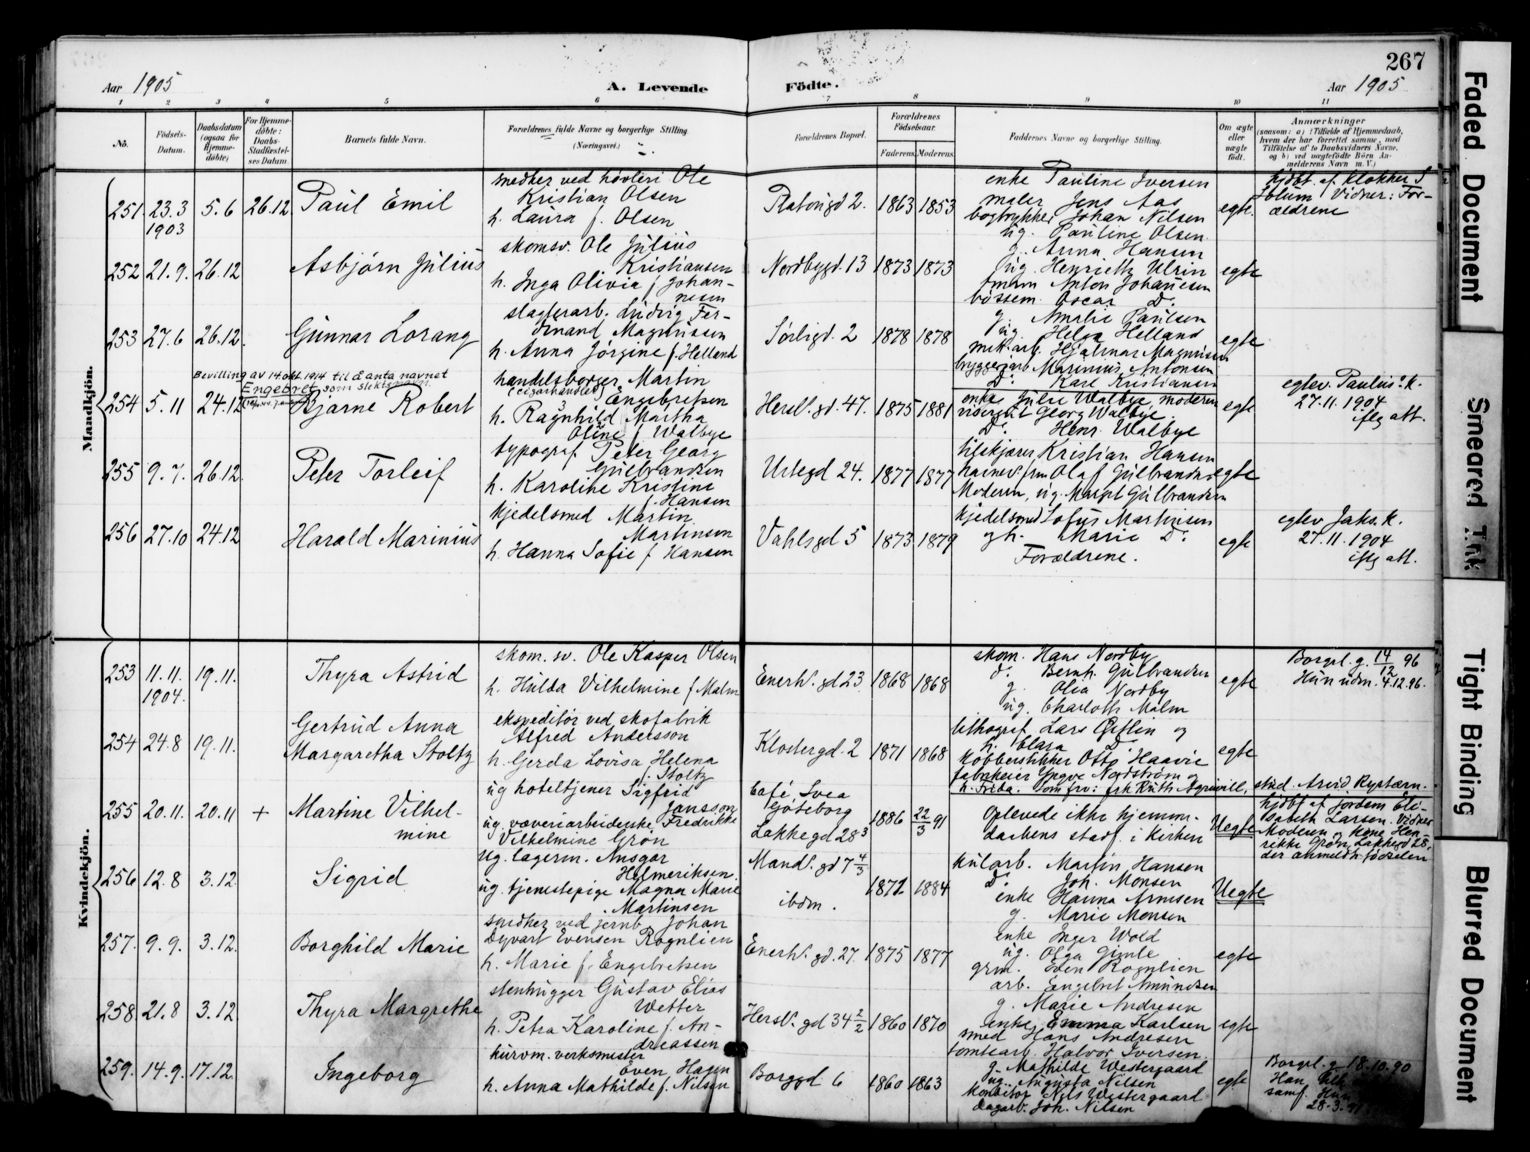 267
Aar 1905
A. Levende Födte.
Aar 1905
1 2 3 4 5 6 7 8 9 10 11
No.
Födsels-Datum.
Daabsdatum (ogsaa for Hjemme-döbte)
For Hjemme-döbte: Daabs-Stadfæstel-ses Datum.
Barnets fulde Navn.
Forældrenes fulde Navne og borgerlige Stilling (Næringsvei.)
Forældrenes Bopæl.
Forældrenes Födselsaar.
Faderens. Moderens.
Faddernes Navne og borgerlige Stilling.
Om ægte eller uægte födt.
Anmærkninger
Mandkjön.
251 23.3 1903 5.6 26.12 Paul Emil
snedker ved høvleri Ole
Kristian Olsen
h. Laura f. Olsen
1863 1853
enke Pauline Iversen
maler Jens Aas
bogtrykker Johan Nilsen
ug. Pauline Olsen
egte.
hjdbt. af klokker S
Blum Vidner: For-
ældrene
252 21.9. 26.12 Asbjørn Julius
skomsv. Ole Julius
Kristiansen
h. Inga Olivia f. Johan-
nesen
Nordbygd. 13 1873 1873
g. Anna Hansen
ug. Henriette Ulrin
Anton Johannesen
bøssem. Oscar Do.
egte
253 27.6 26.12. Gunnar Lorang
slagterarb. Ludvig Fer-
dinand Magnussen
h. Anna Jørgine f. Helland
Sørligd. 2 1878 1878
g. Amalie Paulsen
ug. Helga Helland
mek.arb. Hjalmar Magnusen
bryggeriarb Marinius Antonsen
egte
Bevilling av 14.okt.1914 til å anta navnet
Engebret som slektsnavn.
254 5.11 24.12 Bjarne Robert
handelsborger Martin
(cigarhandler) Engebretsen
h. Ragnhild Martha
Oline f. Walbye
Hersl. gd. 47. 1875 1881
Do. Karl Kristiansen
enke Julie Walbye moderen
Georg Walbye
Do. Henr. Walbye
egte
egtev. Paulus k.
27.11.1904
iflg att.
255 9.7. 26.12. Peter Torleif
typograf Peter Georg
Gulbrandsen
h. Karoline Kristine
f. Hansen
Urtegd 24. 1877 1877
tilskjærer Kristian Hansen
Olaf Gulbrandsen
Moderen, ug. Margit Gulbrandsen
egte
256 27.10 24.12 Harald Marinius
kjedelsmed Martin
Martinsen
h. Hanna Sofie f. Hansen
Vahlsgd 5 1873 1879
kjedelsmed Lofus Martinsen
og h. Marie Do.
Forældrene.
egte
egtev. Jaks. k.
27.11.1904
iflg att.
Kvindekjön.
253 11.11. 1904. 19.11. Thyra Astrid
skom. sv. Ole Kasper Olsen
h. Hulda Vilhelmine f. Malm
Enerh. gd 23 1868 1868
skom. Hans Nordby
d. Bernh. Gulbrandsen
g. Olea Nordby
ug. Charlotte Malm
egte
Borgel. g. 14/12 96
Hun udm. 4.12.96.
254 24.8 19.11. Gertrud Anna
Margaretha Stoltz
ekspeditør ved skofabrik
Alfred Andersson
h. Gerda Lovisa Helena
f. Stoltz
Klostergd. 2 1871 1868
lithograf Lars Giflin og
h. Clara Do.
kobberstikker Otto Haavie
fabrikeier Yngve Nordstrøm og
h. Frida.
egte
stud. Arvid Rystærn.
255 20.11. 20.11 + Martine Vilhel-
mine
ug hoteltjener Sigfrid
Jansson
ug. væveriarbeiderske Fredrikke
Vilhelmine Grøn
Café Svea
Gøteborg
Lakkegd 28 3
1886 22/3 91
Oplevede ikke hjemme-
daabens stadf. i kirken
Uegte
hjdbt af jordem Eli-
sabeth Larsen. Vidner
Moderen og kone Hen-
rikke Grøn, Lakkegd 28,
der anmeldte fødselen
256 12.8 3.12 Sigrid
Ug. lagerm. Ansgar
Helmeriksen.
ug. tjenestepige Magna Marie
Martinsen
Mandl. gd 7 4/3
ibdm.
1872 1884
kularb. Martin Hansen
Do. Joh. Monsen
enke Hanna Arnesen
g. Marie Monsen
Uegte
257. 9.9. 3.12. Borghild Marie
snedker ved jernb. Johan
Dyvart Evensen Rognlien
h. Marie f. Engebretsen
Enerh. gd. 27. 1875 1877
enke Inger Wold
ug. Olga Gimle
grm. Even Rognlien
arb. Engebret Amundsen
egte
258. 21.8 3.12 Thyra Margrethe
stenhugger Gustav Elias
Wetter
h. Petra Karoline f. An-
dreassen
Hersl. gd 34 2/2 1860 1870
g. Marie Andresen
enke Emma Karlsen
smed Hans Andresen
tomtearb. Halvor Iversen
egte
259. 14.9. 17.12. Ingeborg
kurvm. verksmester
Even Hagen
h. Anna Mathilde f. Nilsen
Borggd 6 1860 1863
g. Mathilde Westergaard
ug. Augusta Nilsen
konditor Nils Westergaard
dagarb. Joh. Nilsen
egte
Borgel. g. 18.10.90
Han
samf. Hun
28.3.91
Faded Document
Smeared Ink
Tight Binding
Blurred Document